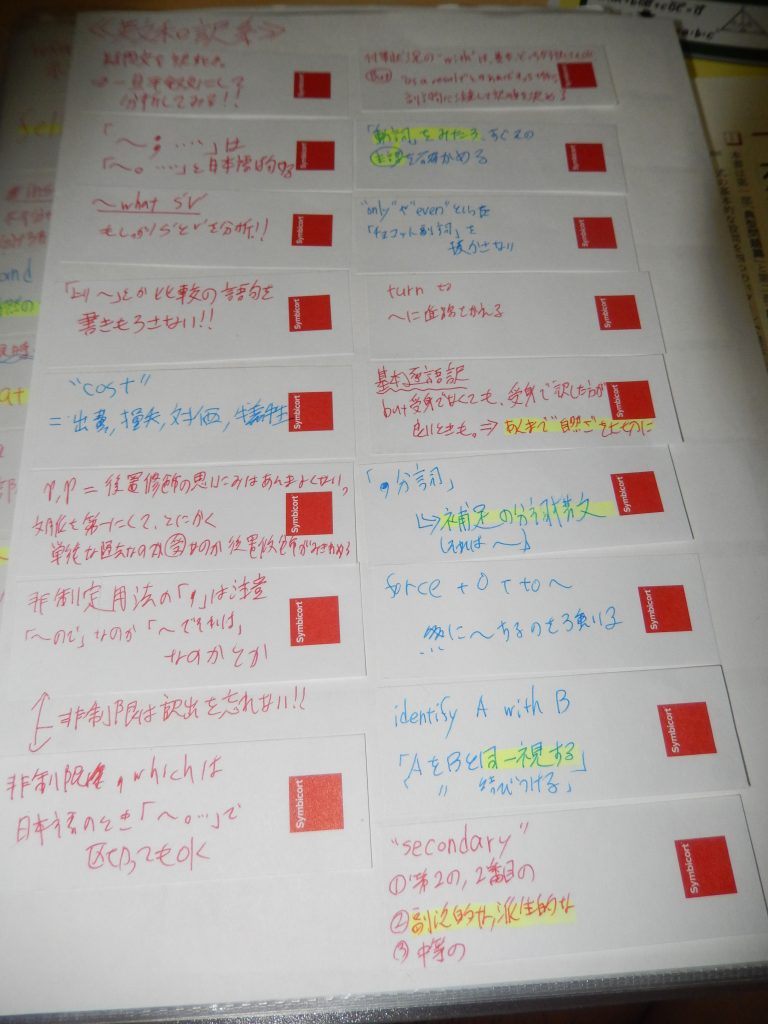 ≪英文和訳集≫
⇒一見平叙文にして
分析してみる!!
Symbicort
「〜; ……」は
「〜。……」と日本語的する
Symbicort
〜what SV
もしっかりS'とV'を分析!!
Symbicort
「より〜」とか比較の語句を
書きもらさない!!
Symbicort
"cost"
=出費,損失,対価,犠牲
Symbicort
P.P=後置修飾の思いこみはあんまよくない,
文脈を第一にして、とにかく
単純な過去なのか受なのか後置修飾かみきわめる
Symbicort
非制定用法の「,」は注意
「〜ので」なのか「〜ですれば」
なのかとか
Symbicort
非制限は訳出を忘れない!!
非制限 , which は
日本語のとき「〜。…」で
区切ってもOK
Symbicort
付帯状況の"with"は、
But "as a result"
Symbicort
「動詞」をみたら、すぐその
主語を確かめる
Symbicort
"only"や"even"といった
「チョコット副詞」を
抜かさない
Symbicort
turn to
〜に進路をかえる
Symbicort
基本逐語訳
but受身でなくても、受身で訳した方が
良いときも。⇒あくまで"自然さ"を大切に
Symbicort
「,分詞」
↳補足の分詞構文
(それは〜)
Symbicort
force + O + to 〜
〜するのを強いる
Symbicort
identify A with B
「AをBと同一視する」
〃 結びつける」
Symbicort
"secondary"
①第2の,2番目の
②副次的な,派生的な
③中等の
Symbicort